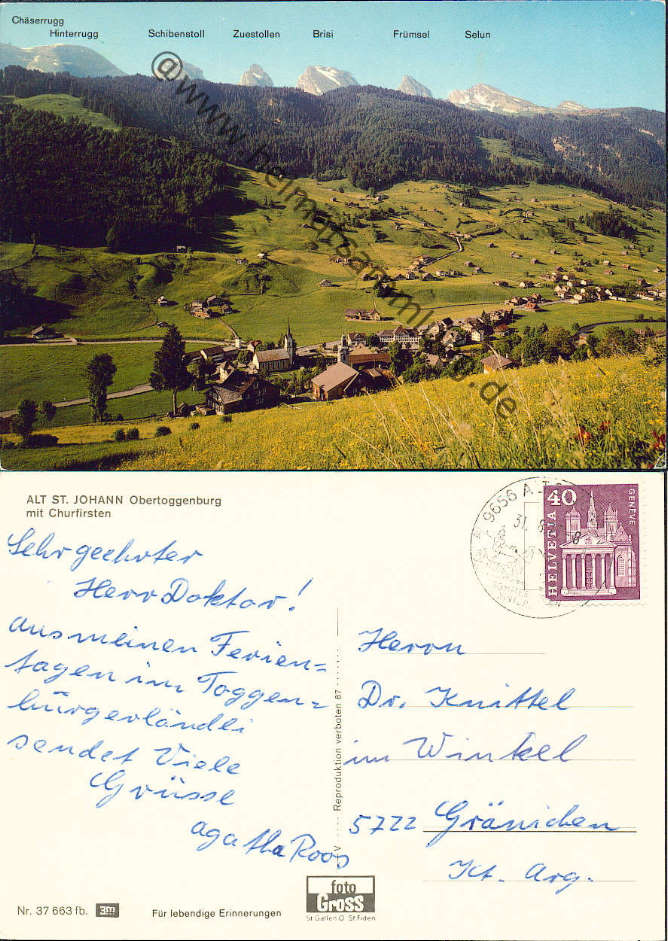 Chäserrugg
Hinterrugg Schibenstoll Zuestollen Brisi Frümsel Selun
@www.heimatsammlung.de
ALT ST. JOHANN Obertoggenburg
mit Churfirsten
Sehr geehrter
Herr Doktor!
aus meinen Ferien=
tagen im Toggen=
bürgerländli
sendet Viele
Grüsse
Agatha Roos
9656 ALT
31. 8.
40
HELVETIA
GENÈVE
Herrn
Dr. Knittel
im Winkel
5722 Gränichen
Kt. Arg.
Reproduktion verboten 67
V
Nr. 37 663 fb. 3m Für lebendige Erinnerungen
foto
Gross
St.Gallen O St.Fiden